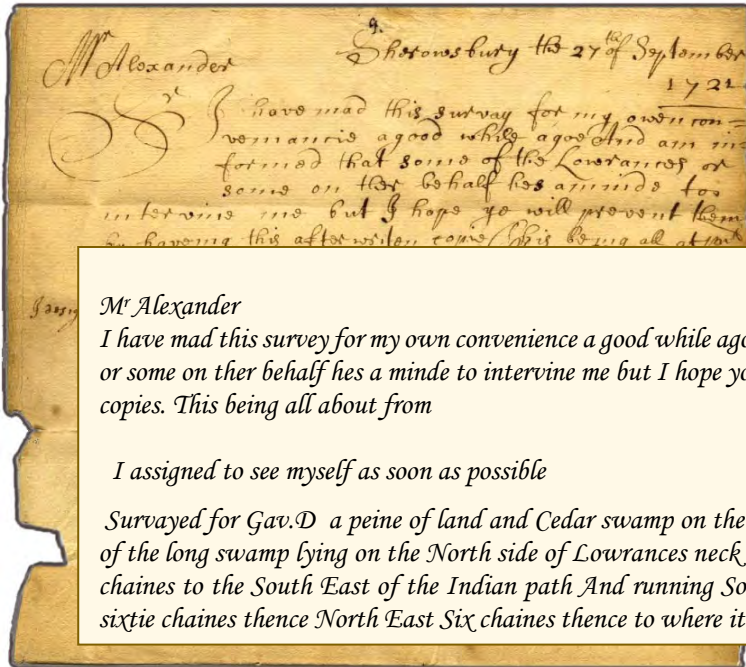 9.
Mr Alexander
Sherowsbury the 27th of September
1721
Sr I have mad this survay for my owen con=
veniancie agood while agoe And am in
formed that some of the Lowrances or
some on ther behalf hes aminde too
intervine me but I hope ye will prevent them
by haveing this afterwriten copie This being all at
I assig
Mr Alexander
I have mad this survey for my own convenience a good while ago
or some on ther behalf hes a minde to intervine me but I hope yo
copies. This being all about from
I assigned to see myself as soon as possible
Survayed for Gav.D a peine of land and Cedar swamp on the
of the long swamp lying on the North side of Lowrances neck
chaines to the South East of the Indian path And running So
sixtie chaines thence North East Six chaines thence to where it